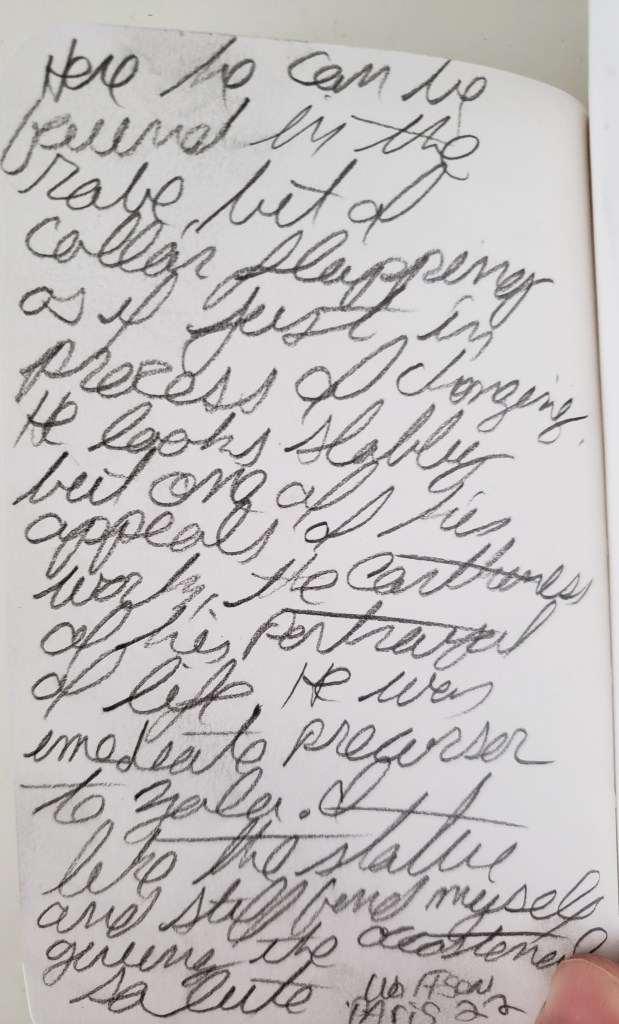 Here he can be
found in the
robe, but of
collar flapping
as if just in
process of changing.
He looks slobby
but one of his
appeals of his
work, the earthiness
of his portrayal
of life. He was
imediate precurser
to Zola. I
like the statue
and still find myself
giving the occasional
salute
Watson
PARIS 22